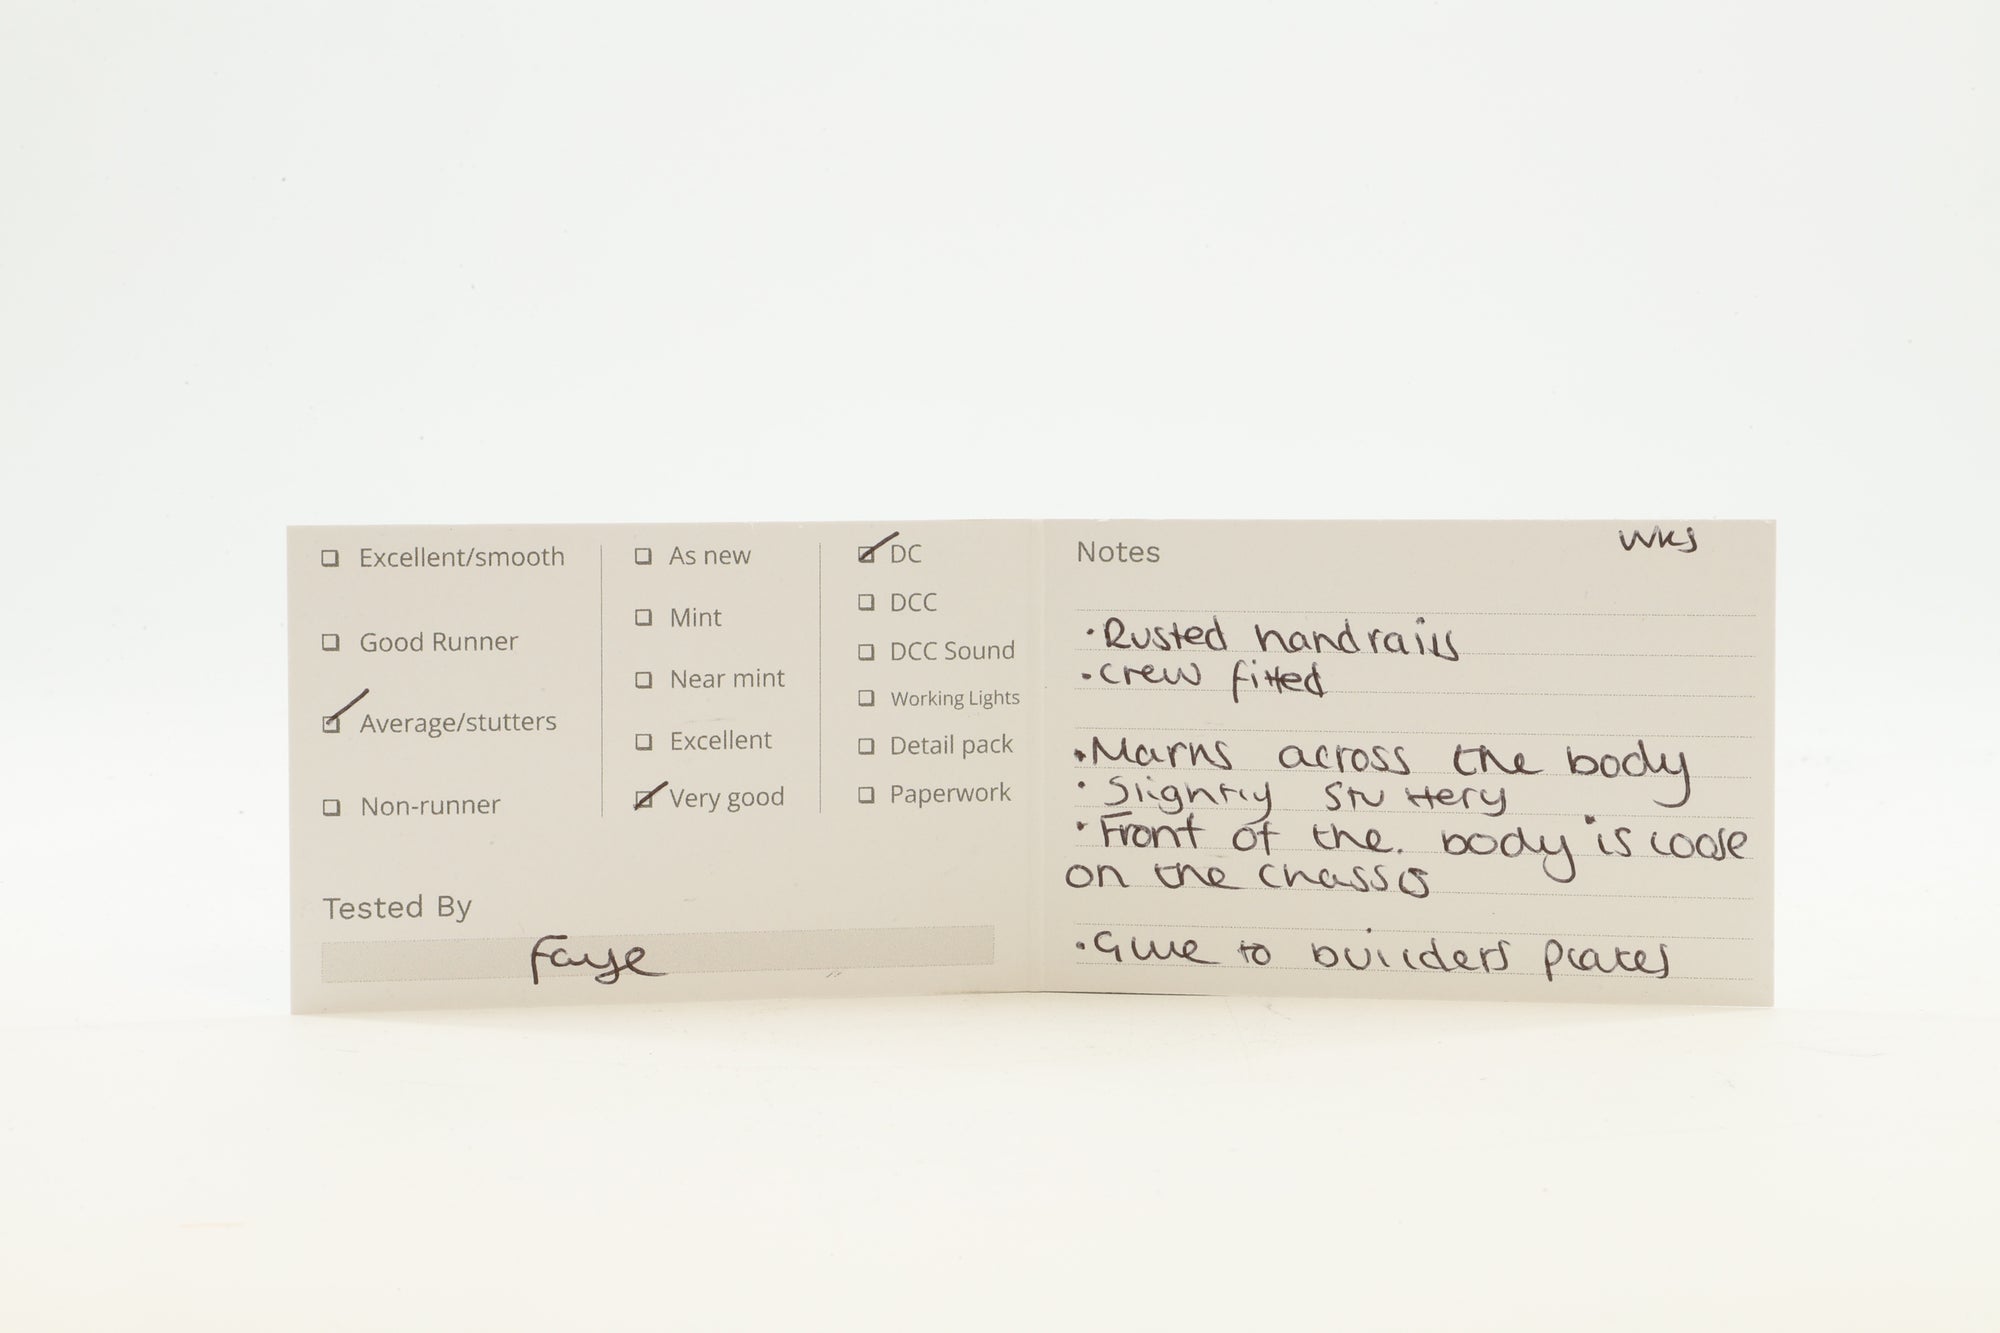 ☐ Excellent/smooth
☐ Good Runner
☑ Average/stutters
☐ Non-runner
☐ As new
☐ Mint
☐ Near mint
☐ Excellent
☑ Very good
☑ DC
☐ DCC
☐ DCC Sound
☐ Working Lights
☐ Detail pack
☐ Paperwork
Tested By
Faye
Notes
WKS
• Rusted handrails
• Crew fitted
• Marks across the body
• Slightly stuttery
• Front of the. body is loose
on the chassis
• Glue to builders plates